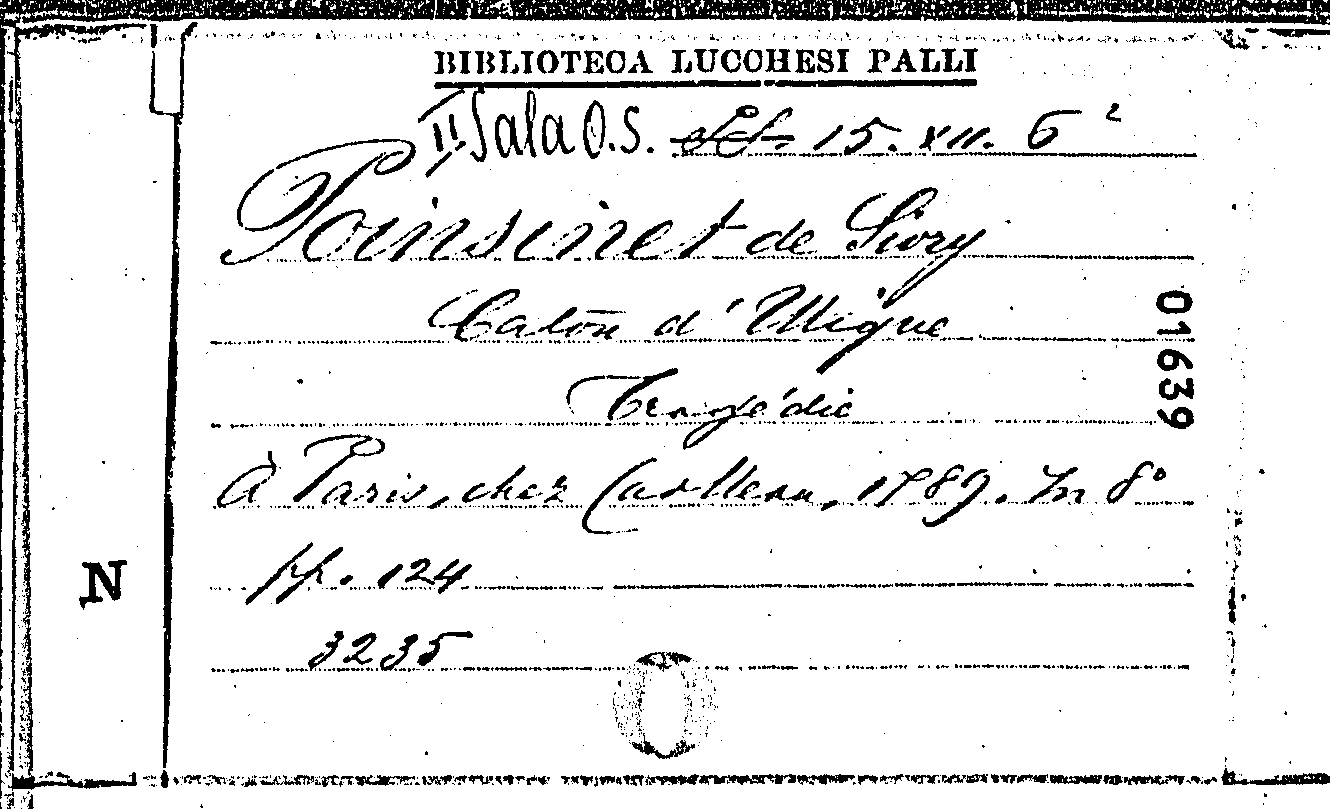 BIBLIOTECA LUCCHESI PALLI
II Sala O.S. 15. XII. 6²
Poinsinet de Sivry
Caton d'Utique
Tragédie
01639
à Paris, chez Cailleau, 1789. In 8°
N
pp. 124
3235